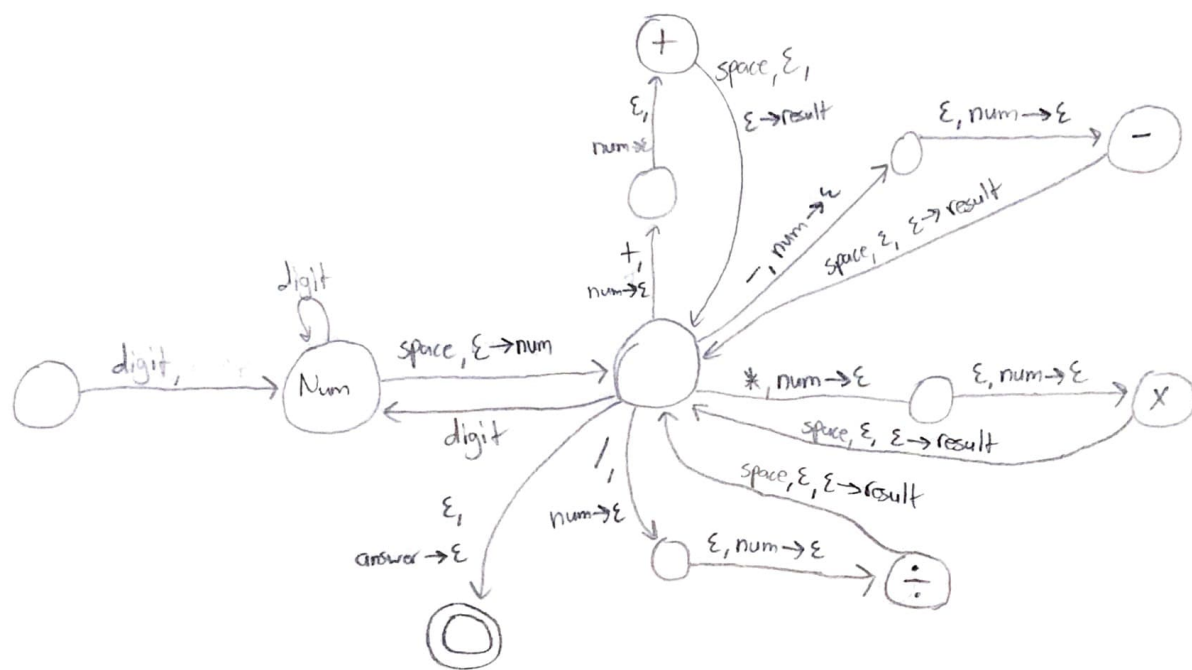 +
space, ε,
ε→result
ε,
num→ε
ε, num→ε
-
+,
num→ε
-, num→ε
space, ε, ε→result
digit
digit,
Num
space, ε→num
digit
*, num→ε
ε, num→ε
x
space, ε, ε→result
space, ε, ε→result
/,
num→ε
ε, num→ε
÷
ε,
answer→ε